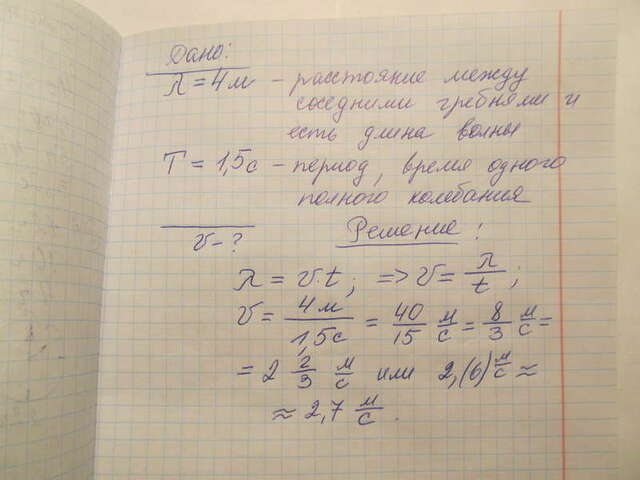 Дано:
λ = 4 м – расстояние между
соседними гребнями и
есть длина волны
T = 1,5 с – период, время одного
полного колебания
v – ?
Решение:
λ = v·t; => v = λ/t;
v = 4 м/1,5 с = 40/15 м/с = 8/3 м/с =
= 2 2/3 м/с или 2,(6) м/с ≈
≈ 2,7 м/с.